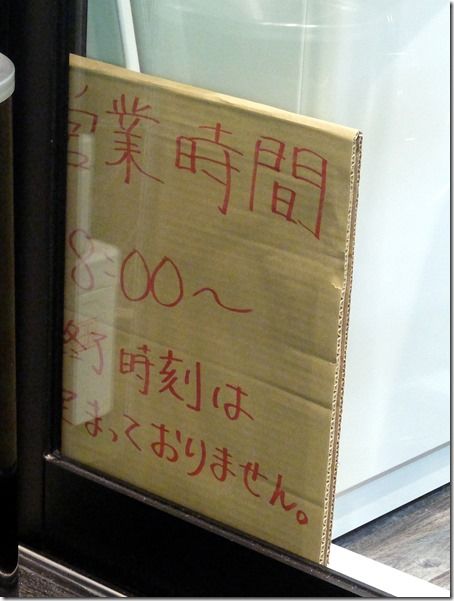 営業時間
8:00〜
終了時刻は
定まっておりません。